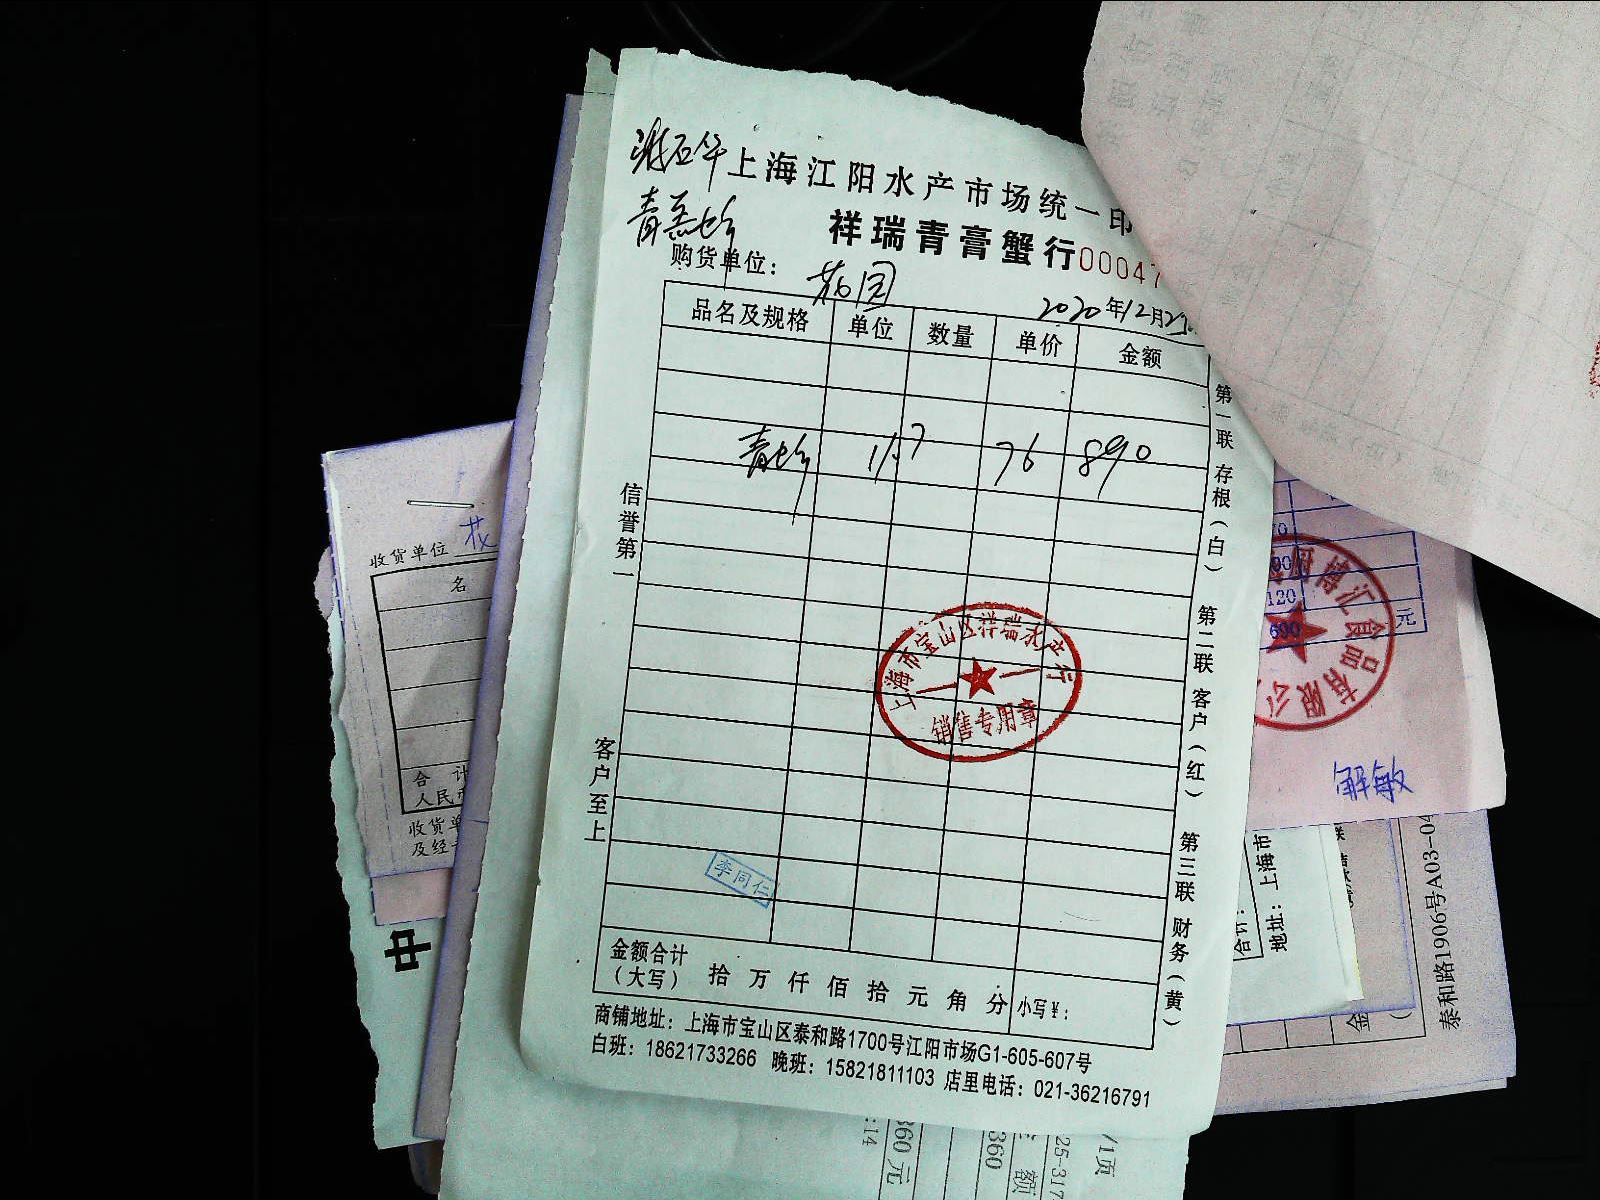 上海江阳水产市场统一印
祥瑞青膏蟹行00047
购货单位：花园
2020年12月
品名及规格 单位 数量 单价 金额
青 11.7 76 890
信誉第一
客户至上
第一联 存根（白） 第二联 客户（红） 第三联 财务（黄）
上海市宝山区祥瑞水产行
销售专用章
李同仁
金额合计
（大写） 拾 万 仟 佰 拾 元 角 分 小写￥：
商铺地址：上海市宝山区泰和路1700号江阳市场G1-605-607号
白班：18621733266 晚班：15821811103 店里电话：021-36216791
收货单位 花
名
合 计
人民
收货单
及经
中
120
600
元
汇食品有限公
解敏
合计：
地址：上海市
泰和路1906号A03-04
金
:14
360元
360
额
25-317
/1页